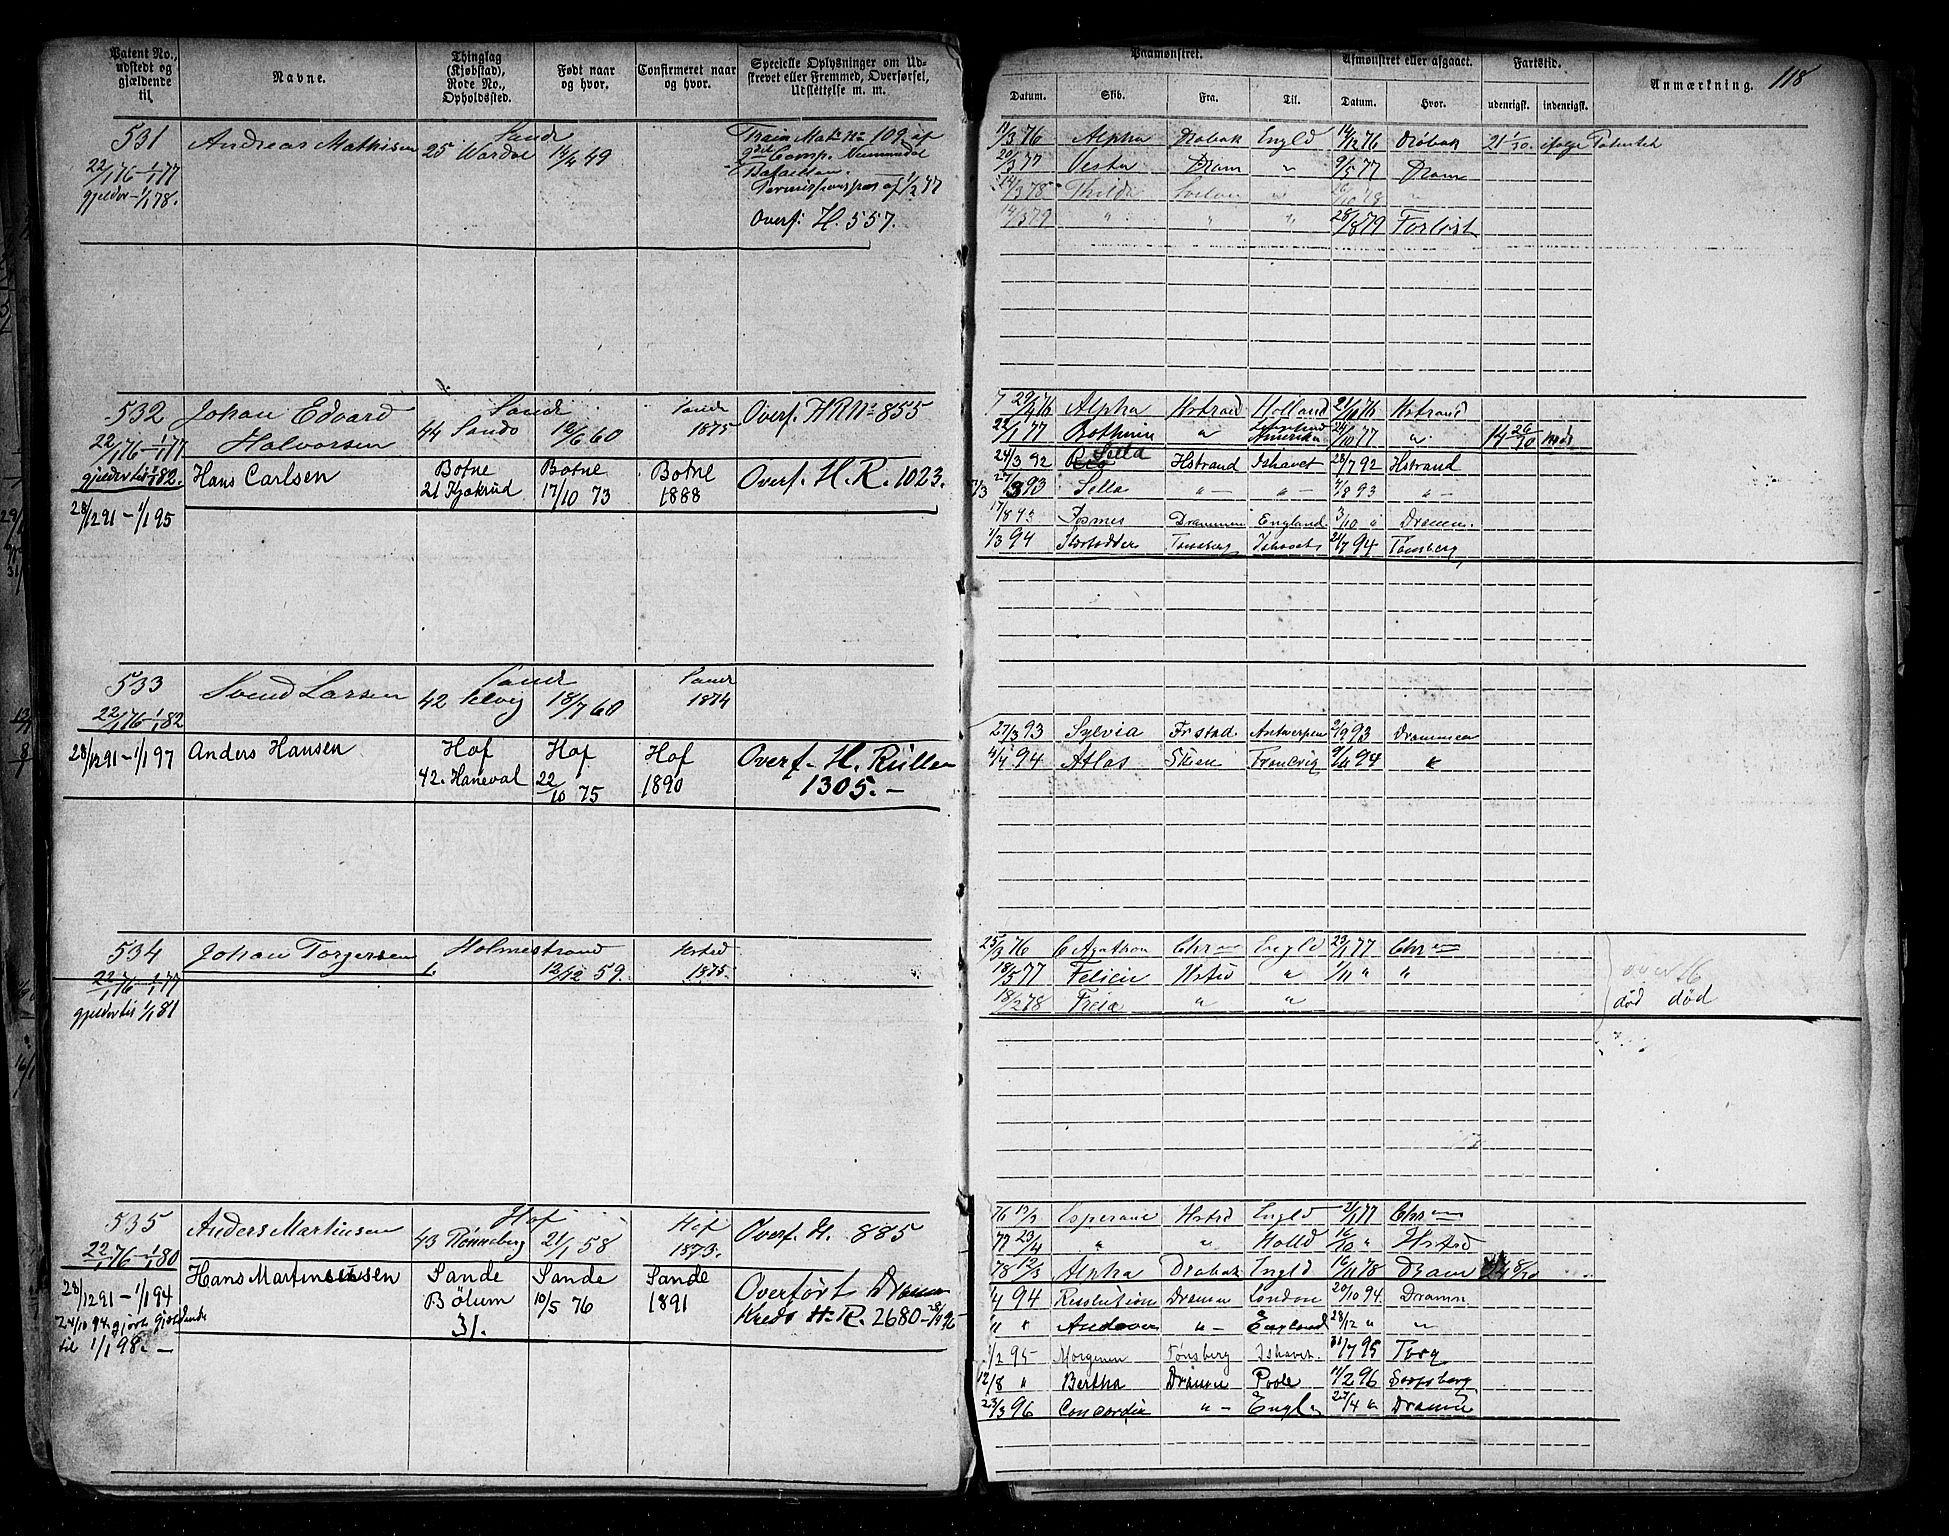 Patent No., udstedt og gjældende til.
Navne.
Thinglag (Kjøbstad), Rode No., Opholdssted.
Født naar og hvor.
Confirmeret naar og hvor.
Specielle Oplysninger om Udskrevet eller Fremmed, Overførsel, Udslettelse m. m.
Paamønstret.
Afmønstret eller afgaaet.
Fartstid.
Anmærkning. 118
Datum. Skib. Fra. Til. Datum. Hvor. udenrigsk. indenrigsk.
531 Andreas Mathisen
Sande
25 14/4 49
22/1 76 - 1/1 77
gjelder - 1/1 78.
109 af
Comp. Nummedal
Bataillon.
Permissionspas af 1/2 77
Overf. H. 557.
11/3 76 Alpha Drøbak Engld 14/12 76 Drøbak 21 1/30 ifølge Patentet
20/3 77 Vesta Dram " 9/5 77 Dram
14/3 78 Thilda "
14/3 79 " " " 28/3 79 Forlist
532 Johan Edvard Halvorsen
Sande
44 Sando 12/6 60
Sande 1875
Overf. HR No 855
22/1 76 - 1/1 77
gjelder til 1/1 82.
29/4 76 Alpha Hstrand Holland 21/10 76 Hstrand
22/1 77 Bothnia " Amerika 24/10 77 " 14 26/30
Hans Carlsen
Botne Botne Botne
21 Kjøkrud 17/10 73 1888
Overf. H. R. 1023.
28/12 91 - 1/1 95
24/3 92 Sella Hstrand Ishavet 28/7 92 Hstrand
27/3 93 Sella " - " - 4/8 93 " -
17/8 93 Drammen England 3/10 " Dramn.
1/3 94 Tønsberg Ishavet 21/7 94 Tønsberg
533 Svend Larsen
Sande
42 Selvig 18/7 60
Sande 1874
22/1 76 - 1/1 82
28/12 91 - 1/1 97 Anders Hansen
Hof Hof Hof
42. Haneval 22/10 75 1890
Overf - H. Rullen
1305. -
27/3 93 Sylvia Frstad Antwerpen 2/9 93 Drammen
4/4 94 Atlas Skien 9/11 94 "
534 Johan Torgersen
Holmestrand
1. 12/12 59.
Hstrd 1875.
22/1 76 - 1/1 77
gjelder til 1/1 81
25/3 76 Agathon Chr Engld 23/1 77 Chr
18/5 77 Felicia Hstrd " 1/11 " "
18/2 78 Freia " "
død død
535 Anders Martinsen
Hof
43 Rønneberg 21/1 58
Hof 1873.
Overf. H. 885
22/1 76 - 1/1 80
76 13/3 Esperance Hstrd Engld 2/1 77 Chr
77 23/4 " " Holld " Hstrd
78 12/3 Alpha Drøbak Engld 16/11 78 Dram
Hans Martinsen
Sande Sande Sande
Bølum 10/5 76 1891
31.
28/12 91 - 1/1 94
24/10 94 gjort gjældende
til 1/1 98. -
Overført Dramn
Kreds H. R. 2680 -
1/4 94 Resolution Dramn London 20/10 94 Dramn
1/11 " Andover " - England 28/12 " "
1/2 95 Morgenen Tønsberg Ishavet. 31/7 95 Tbrg
12/8 " Bertha Dramn Poole 11/2 96 Sarpsborg
23/3 96 Concordia " - Engl 27/4 " Dramn